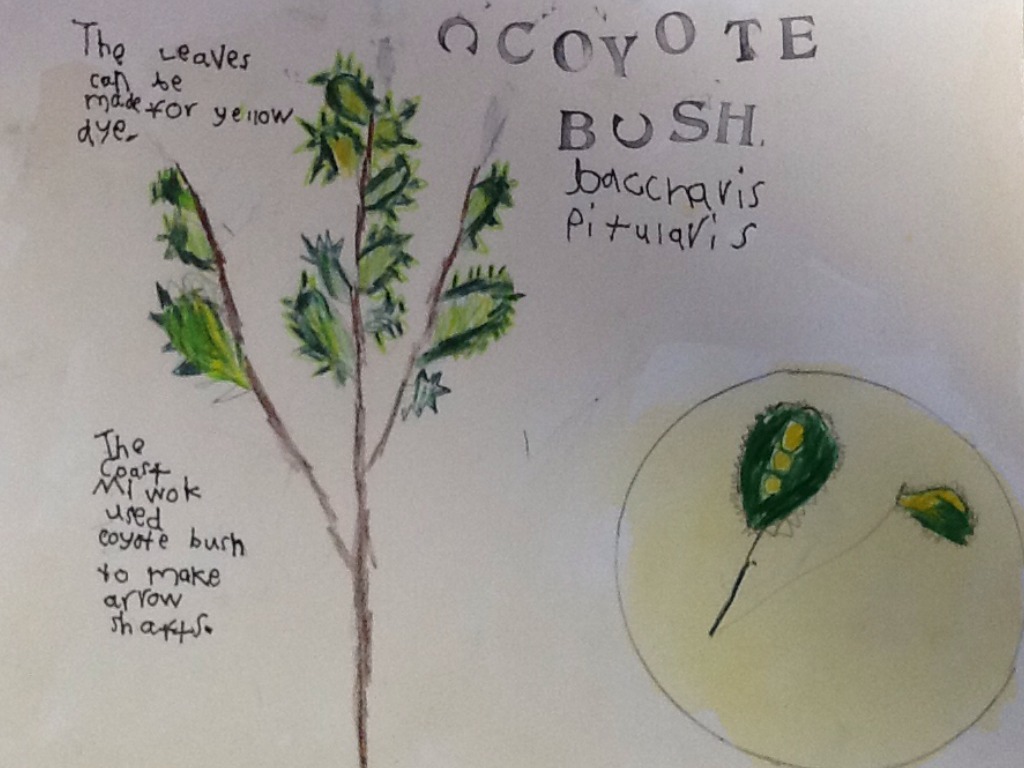 COYOTE
BUSH.
baccharis
pitularis
The Leaves
can be
made for yellow
dye.
The
coast
Miwok
used
coyote bush
to make
arrow
shafts.